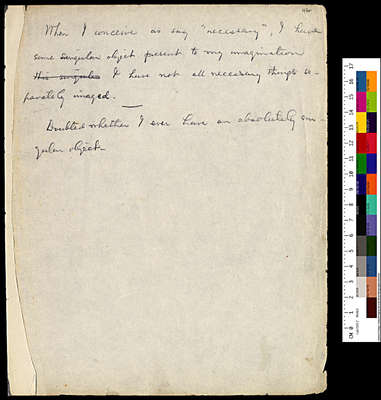 When I conceive as say "necessary", I have
some singular object present to my imagination
this singular I have not all necessary things se-
parately imaged.
Doubted whether I ever have an absolutely sin-
gular object